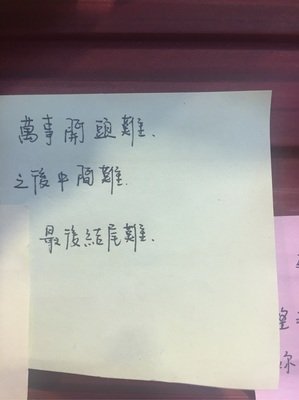 萬事開頭難.
之後中間難.
最後結尾難.